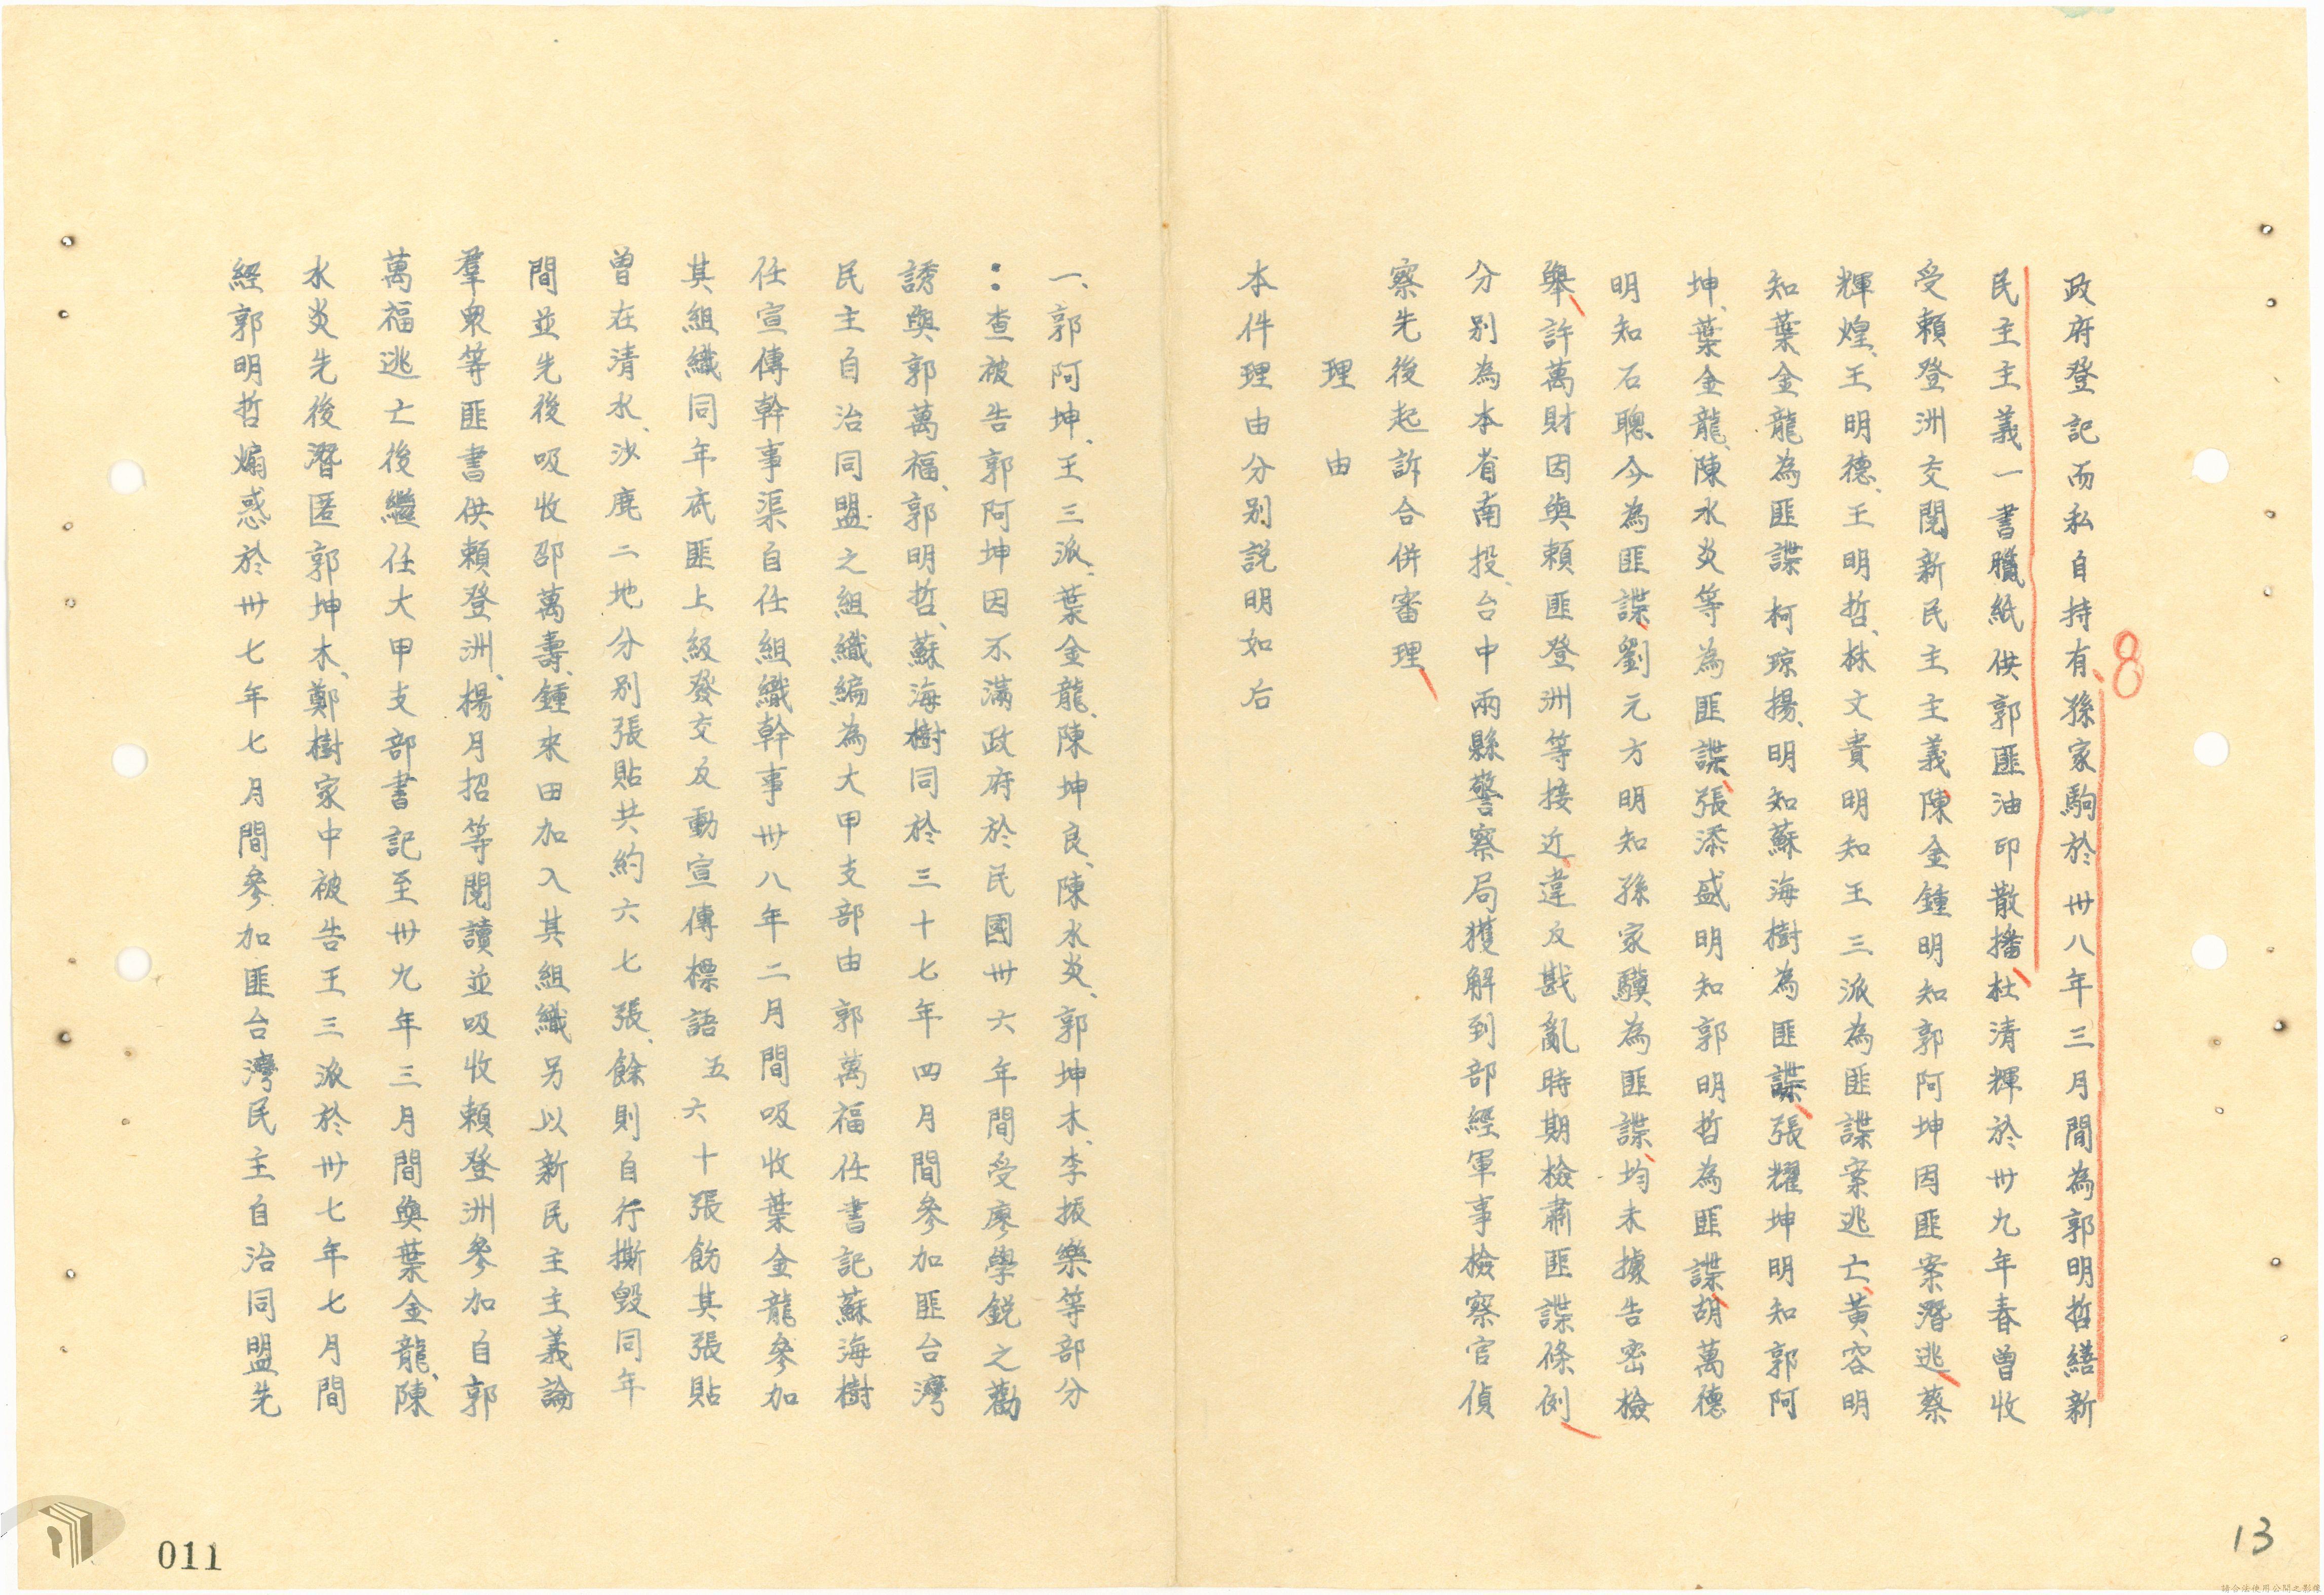 8
政府登記而私自持有、孫家駒於卅八年三月間為郭明哲繕新
民主主義一書臘紙供郭匪油印散播、杜清輝於卅九年春曾收
受賴登洲交閱新民主主義陳金鍾明知郭阿坤因匪案潛逃、蔡
輝煌、王明德、王明哲、林文貴明知王三派為匪諜案逃亡、黃容明
知葉金龍為匪諜柯琼揚、明知蘇海樹為匪諜、張耀坤明知郭阿
坤、葉金龍、陳水炎等為匪諜、張添盛明知郭明哲為匪諜、胡萬德
明知石聰今為匪諜、劉元方明知孫家驥為匪諜、均未據告密檢
舉、許萬財因與賴匪登洲等接近、違反戡亂時期檢肅匪諜條例、
分別為本省南投、台中兩縣警察局獲解到部經軍事檢察官偵
察先後起訴合併審理、
理由
本件理由分別説明如后
一、郭阿坤、王三派、葉金龍、陳坤良、陳水炎、郭坤木、李振樂等部分
：查被告郭阿坤因不滿政府於民國卅六年間受廖學鋭之勸
誘與郭萬福、郭明哲、蘇海樹同於三十七年四月間參加匪台灣
民主自治同盟之組織編為大甲支部由郭萬福任書記蘇海樹
任宣傳幹事渠自任組織幹事卅八年二月間吸收葉金龍參加
其組織同年底匪上級發交反動宣傳標語五六十張飭其張貼
曾在清水、沙鹿二地分別張貼共約六七張、餘則自行撕毀同年
間並先後吸收邵萬壽、鍾來田加入其組織另以新民主主義論
羣衆等匪書供賴登洲、楊月招等閱讀並吸收賴登洲參加自郭
萬福逃亡後繼任大甲支部書記至卅九年三月間與葉金龍、陳
水炎先後潛匿郭坤木、鄭樹家中被告王三派於卅七年七月間
經郭明哲煽惑於卅七年七月間參加匪台灣民主自治同盟先
13
011
請合法使用公開之影像